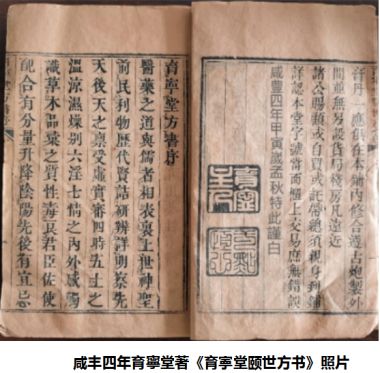 膏丹一應俱在本鋪內修合遵古炮製外
間並無另設貨局棧房凡遠近
諸公賜顧或自買或託帶總須親身到鋪
詳認本堂字號當面櫃上交易庶無錯誤
咸豐四年甲寅歲孟秋特此謹白
育寧堂方書序
醫藥之道與儒者相表裏上世神聖
前民利物歷代賢喆研辨詳明察先
天後天之禀受虛實審四時五土之
溫涼濕燥別六淫七情之內外感傷
識草木品彙之質性毒良君臣佐使
配合有分量升降陰陽先後有宜忌
咸丰四年育寧堂著《育寧堂颐世方书》照片